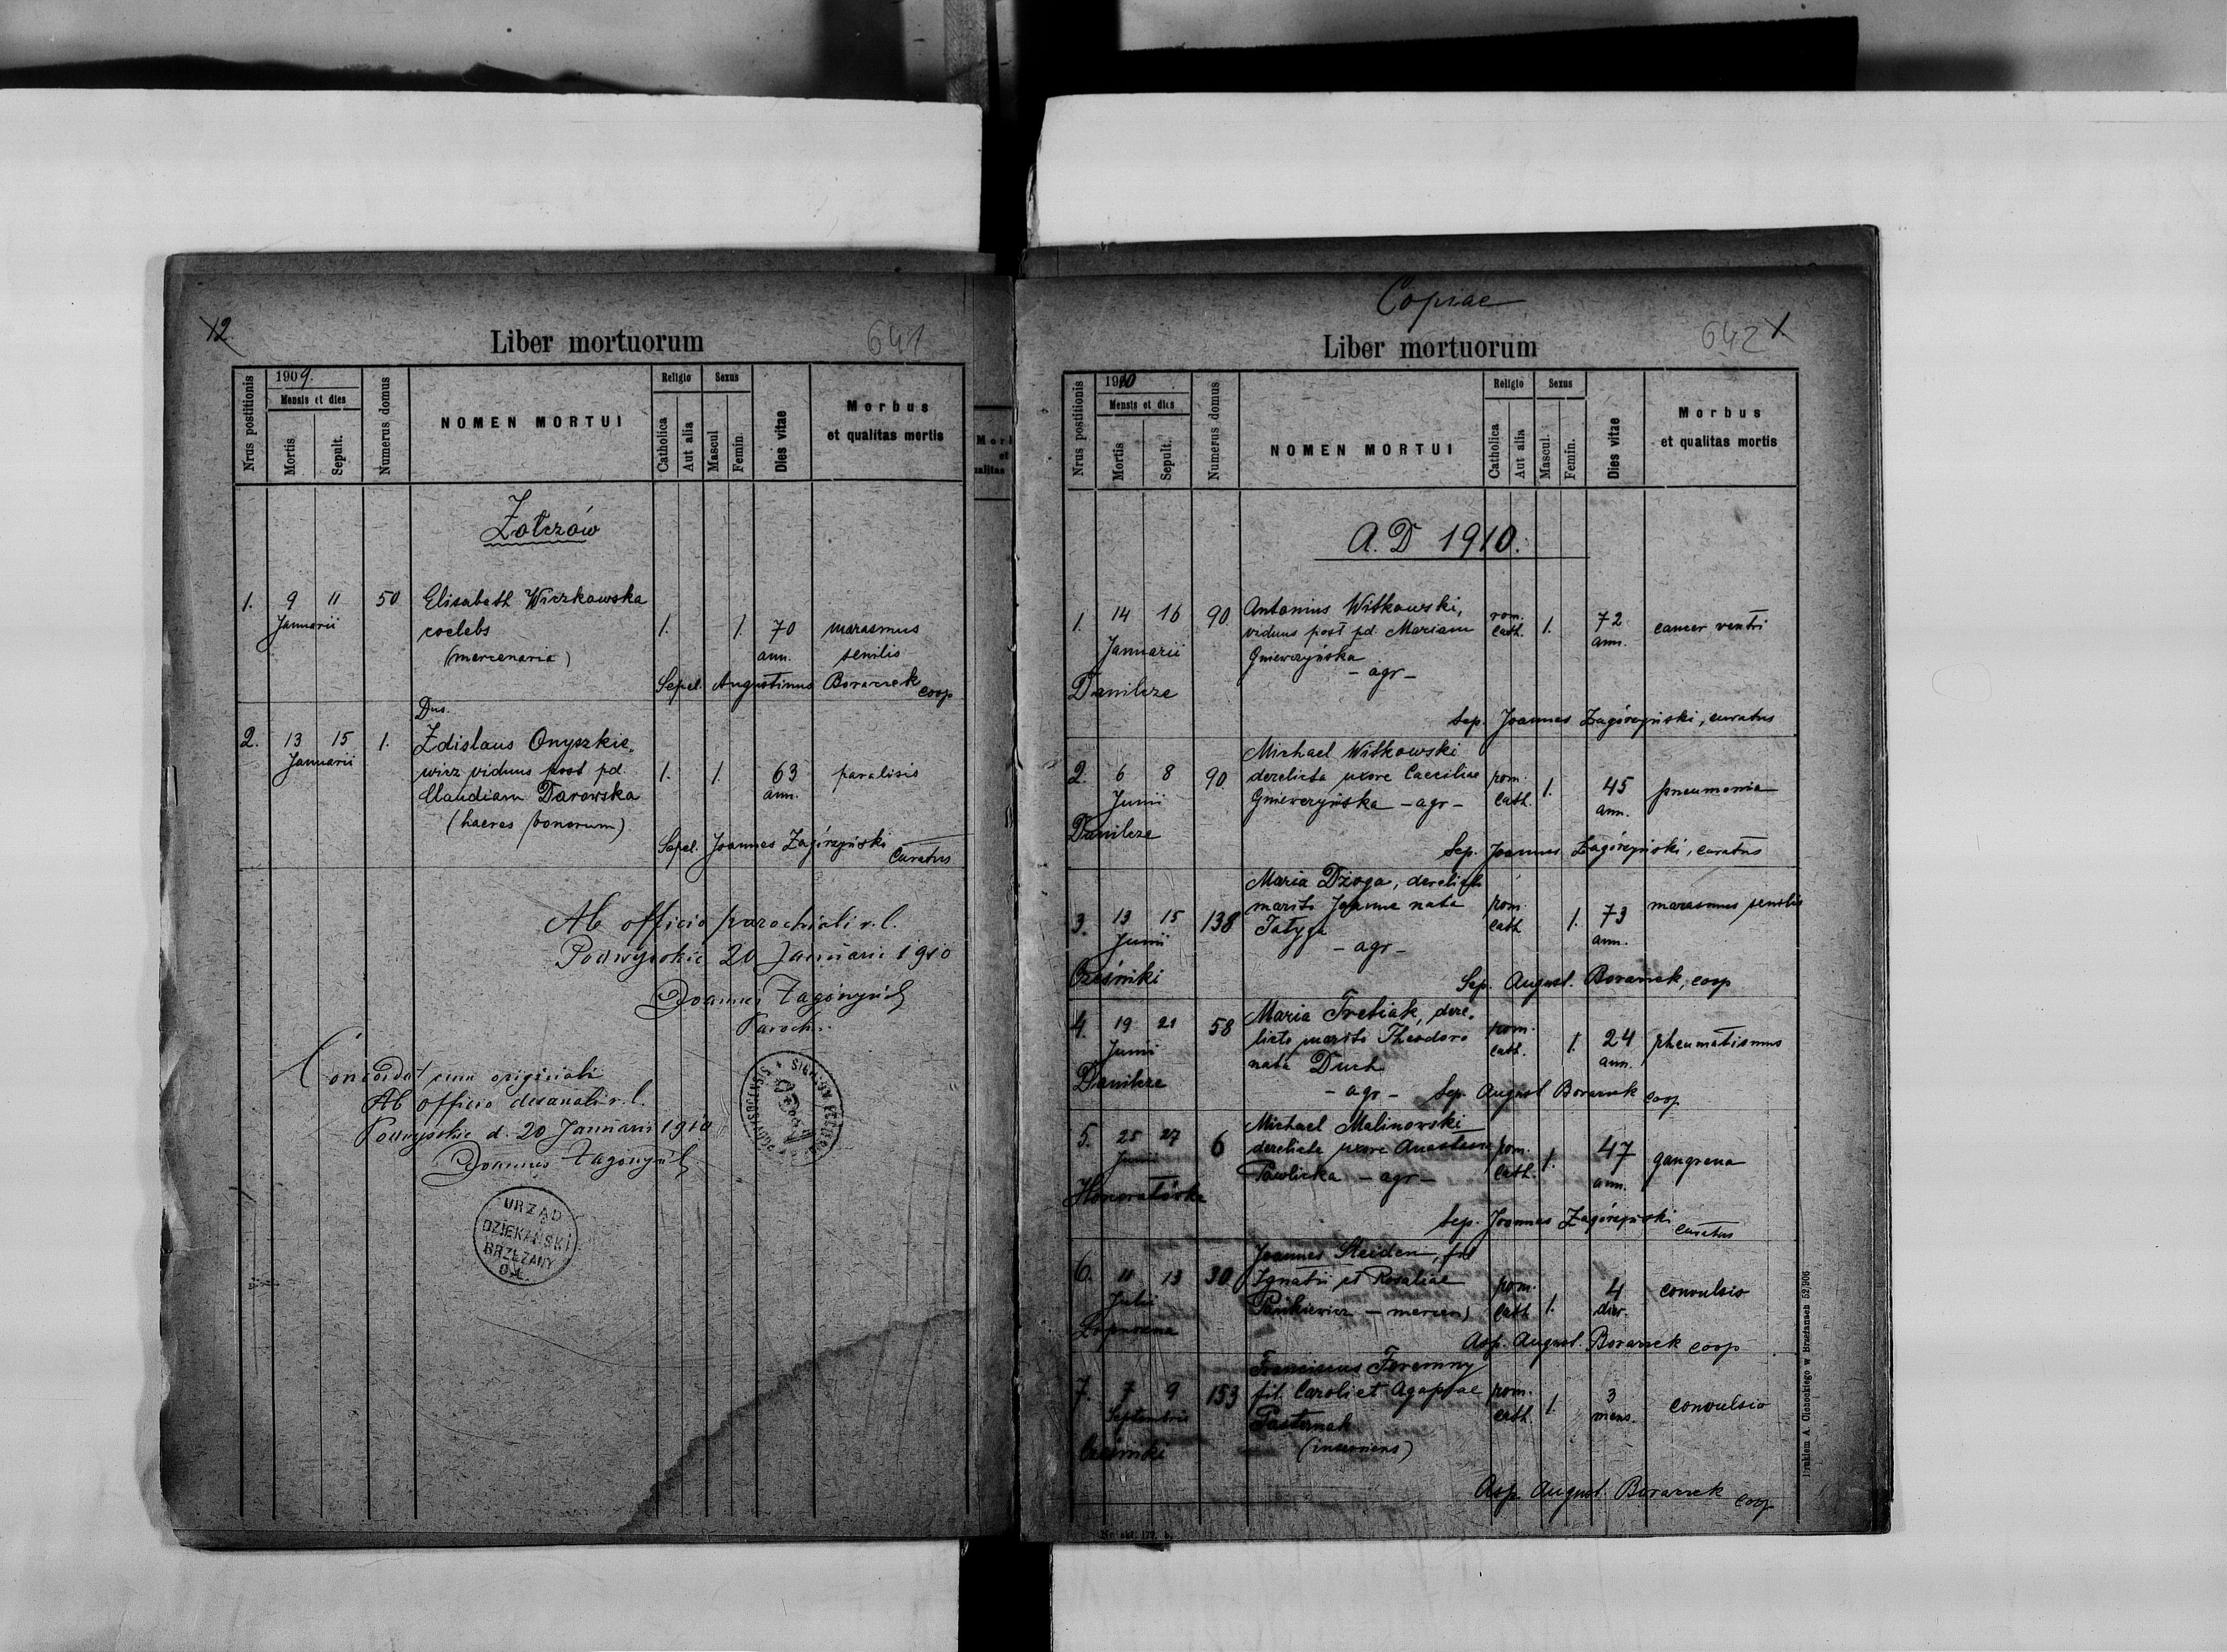 12
Liber mortuorum
641
Nrus postitionis
1909.
Mensis et dies
Mortis
Sepult.
Numerus domus
NOMEN MORTUI
Religio
Catholica
Aut alia
Sexus
Mascul
Femin.
Dies vitae
Morbus
et qualitas mortis
Żołczów
1. 9 11 50 Elisabeth Wiczkowska
Januarii coelebs 1. 1. 70 marasmus
(mercenaria) ann. senilis
Sepel. Augustinus Boraczek coop
Dus.
2. 13 15 1. Zdislaus Onyszkie„
Januarii wicz viduus post pd. 1. 1. 63 paralisis
Claudiam Darowska ann.
(haeres bonorum)
Sepel. Joannes Zagórzyński Curatus
Ab officio parochiali r. l.
Podwysokie 20 Januarii 1910
Joannes Zagórzyński
Paroch.
Concordat cum originali
Ab officio decanali r. l.
Podwysokie d. 20 Januarii 1910
Joannes Zagórzyński
URZĄD
DZIEKAŃSKI
BRZEŻANY
O.Ł.
Copiae
Liber mortuorum
642 1.
Nrus postitionis
1910
Mensis et dies
Mortis
Sepult.
Numerus domus
NOMEN MORTUI
Religio
Catholica
Aut alia
Sexus
Mascul.
Femin.
Dies vitae
Morbus
et qualitas mortis
A. D 1910.
1. 14 16 90. Antonius Witkowski, rom. 72
viduus post pd. Mariam cath. 1. ann. cancer ventri
Januarii Gniewczyńska
- agr -
Danilcze
Sep. Joannes Zagórzyński, curatus
Michael Witkowski
2. 6 8 90. derelicta uxore Caeciliae rom. 1. 45 pneumonia
Junii Gniewczyńska - agr - cath. ann.
Danilcze
Sep. Joannes Zagórzyński, curatus
Maria Dżoga, derelicto
3. 13 15 138 marito Joanne nata rom. 1. 73 marasmus senilis
Junii Tatyga cath ann.
- agr -
Cześniki
Sep. August. Boraczek, coop
4. 19 21 58 Maria Tretiak, dere„
Junii licto marito Theodoro rom. 1. 24 rheumatismus
nata Duch cath. ann.
Danilcze
- agr - Sep. August Boraczek coop
Michael Malinowski
5. 25 27 6 derelicta uxore Anastasia rom. 1. 47 gangrena
Junii Pawlicka - agr - cath. ann.
Honoratówka
Sep. Joannes Zagórzyński curatus
6. 11 13 30. Joannes Steiden, fil
Julii Ignatii et Rosaliae rom. 4 convulsio
cath 1. dier.
Asp. August. Boraczek coop
Franciscus Foremny
7. 7 9 153 fil. Caroli et Agapiae rom. 1. 3 convulsio
Septembris Pasternak cath. mens.
Cześniki
Asp. August. Boraczek coop
Drukiem A. Cichockiego w Brzeżanach 52/906